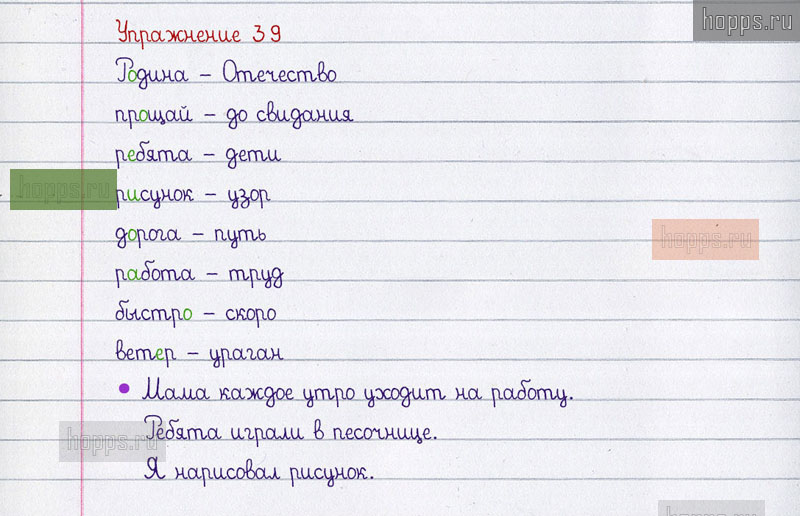 hopps.ru
Упражнение 39
Родина – Отечество
прощай – до свидания
ребята – дети
hopps.ru
рисунок – узор
дорога – путь
hopps.ru
работа – труд
быстро – скоро
ветер – ураган
• Мама каждое утро уходит на работу.
Ребята играли в песочнице.
hopps.ru
Я нарисовал рисунок.
hopps.ru